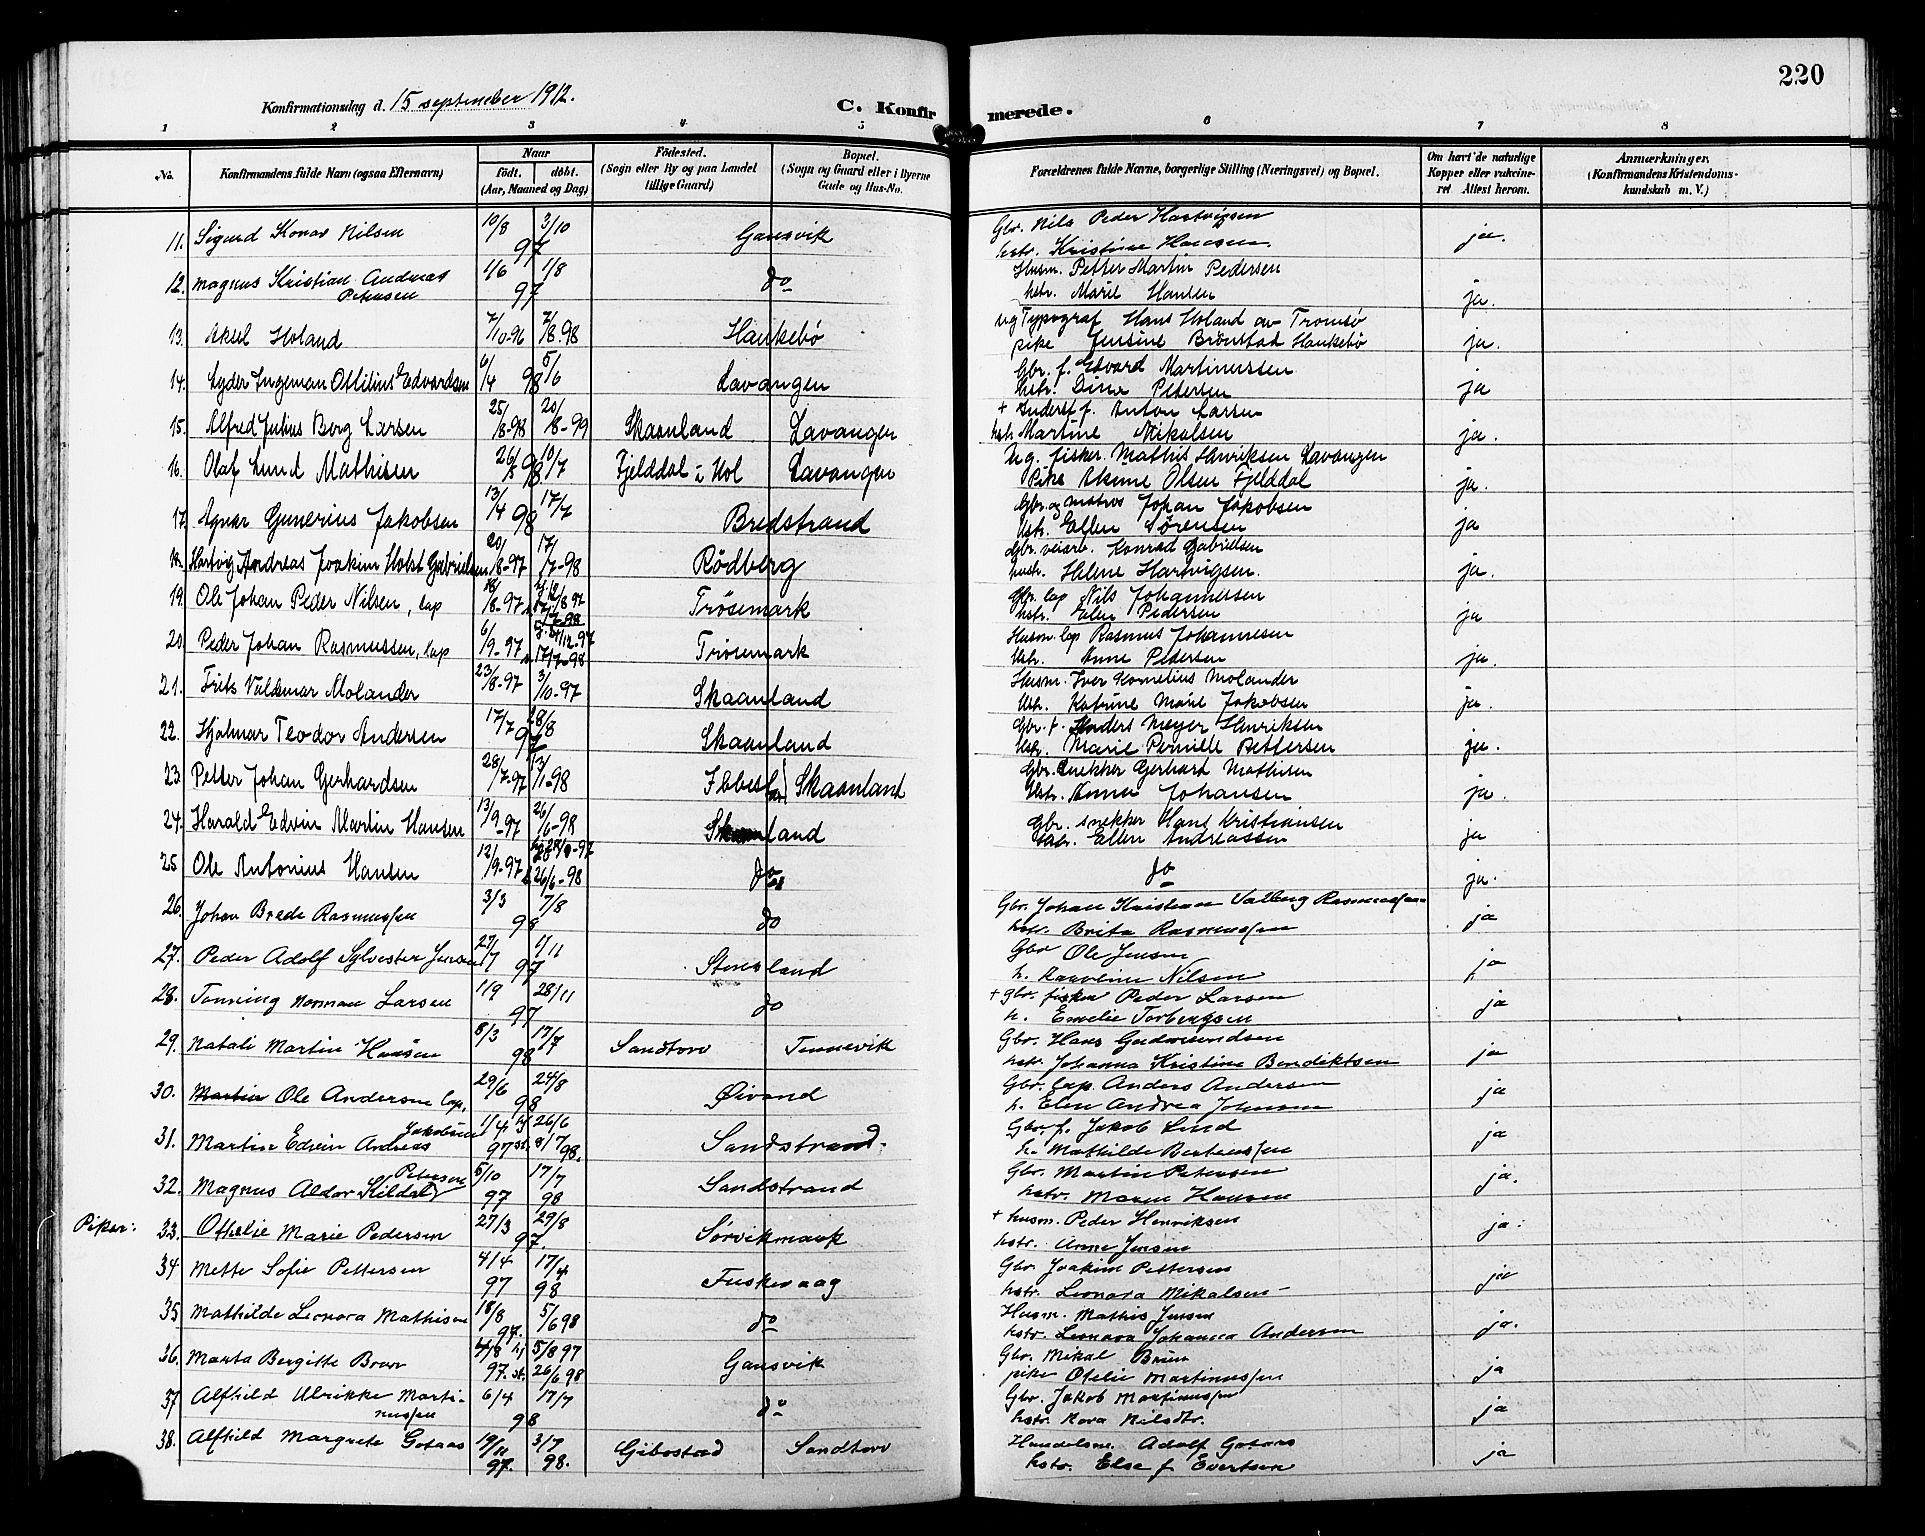 220
Konfirmationsdag d. 15 september 1912.
C. Konfirmerede.
1 2 3 4 5 6 7 8
No. Konfirmandens fulde Navn (ogsaa Efternavn) Naar født. døbt. (Aar, Maaned og Dag) Fødested. (Sogn eller By og paa Landet tillige Gaard) Bopæl. (Sogn og Gaard eller i Byerne Gade og Hus-No. Forældrenes fulde Navne, borgerlige Stilling (Næringsvei) og Bopæl. Om havt de naturlige Kopper eller vaccineret Attest herom. Anmærkninger. (Konfirmandens Kristendomskundskab m. V.)
11. Sigurd Konar Nilsen 10/8 3/10 97 Gausvik Gbr. Nils Peder Hartvigsen hstr. Kristine Hansen. ja.
12. Magnus Kristian Andreas Petersen 1/6 1/8 97 do Husm. Petter Martin Pedersen hstr. Marie Hansen ja.
13. Aksel Holand 7/10-96 7/8-98 Haukebø ug Typograf Hans Holand av Tromsø pike Jensine Brønstad Haukebø ja.
14. Lyder Ingeman Ottilius Edvardsen 6/4 5/6 98 Lavangen Gbr. f. Edvard Martinussen hstr. Dina Petersen ja
15. Alfred Julius Berg Larsen 25/8-98 20/8-99 Skaanland Lavangen + Inderst f. Anton Larsen hstr Martine Nikalsen ja.
16. Olaf Lund Mathisen 26/ 10/7 98 Fjelddal i Hol Lavangen Ug. fisker. Mathis Henriksen Lavangen Pike Olsen Fjelddal ja.
17. Agnar Gunerius Jakobsen 13/4 17/7 98 Bredstrand Gbr. og matros Johan Jakobsen Hstr. Ellen Sørensen ja
18. Hartvig Andreas Joakim Holst Gabrielsen 20/8-97 17/7-98 Rødberg Gbr. veiarb. Konrad Gabrielsen hustr. Helene Hartvigsen. ja.
19. Ole Johan Peder Nilsen, lap 18/8-97 12/8 97 17/7 98 Trøsemark Gbr. lap Nils Johannesen hstr. Elen Pedersen ja
20. Peder Johan Rasmussen, lap 6/9-97 /12-97 17/7-98 Trøsemark Husm. lap Rasmus Johannesen Hstr. Anne Pedersen ja.
21. Frits Valdemar Molander 23/8-97 3/10-97 Skaanland Husm. Iver Kornelius Molander Hstr. Katrine Marie Jakobsen ja.
22. Hjalmar Teodor Andersen 17/7 28/8 97 Skaanland Gbr. f. Anders Meyer Henriksen Hstr. Marie Pernille Pettersen ja.
23. Petter Johan Gerhardsen 28/7-97 13/1-98 Ibbestad Skaanland Gbr. Snekker Gerhard Mathisen Hstr. Anna Johansen ja.
24. Harald Edvin Martin Hansen 13/9-97 26/6-98 Skaanland Gbr. snekker Hans Kristiansen Hstr. Ellen Andreassen ja
25. Ole Antonius Hansen 12/9-97 -97 26/6-98 do do ja.
26. Johan Brede Rasmussen 3/3 7/8 98 do Gbr. Johan Kristian Valberg Rasmussen hstr. Brita Rasmussen ja
27. Peder Adolf Sylvester Jensen 27/7 1/11 97 Stensland Gbr Ole Jensen h. Karoline Nilsen ja
28. Tønning Norman Larsen 1/9 28/11 97 do + gbr. fisker Peder Larsen h. Emelie Torbergsen ja
29. Natali Martin Hansen 8/3 17/7 98 Sandtorv Tennevik Gbr. Hans Gudmundsen hstr. Johanna Kristine Bendiktsen ja
30. Martin Ole Andersen lap. 29/6 24/8 98 Øivand Gbr. lap. Anders Andersen h. Elen Andrea Johnsen ja
31. Martin Edvin Andreas Jakobsen 1/4 97 hj 26/6 st. 8/7 98. Sandstrand. Gbr. f. Jakob Lind h. Mathilde Bertheussen ja
32. Magnus Aldor Kildal Petersen 5/10 97 17/7 98 Sandstrand Gbr. Martin Petersen hstr. Maren Hansen ja.
Piker: 33. Othelie Marie Pedersen 27/3 29/8 97. Sørvikmark + husm. Peder Henriksen hstr. Anne Jensen ja.
34 Mette Sofie Pettersen 4/4 97 17/4 98 Fuskevaag Gbr. Joakim Pettersen hstr. Leonora Mikalsen ja
35 Mathilde Leonora Mathisen 18/8 97. 5/6 98 do Husm. Mathis Jensen hstr. Leonora Johanna Andersen ja.
36. Marta Bergitte Brun 4/8 97. hj 5/8 97 st. 26/6 98 Gausvik Gbr. Mikal Brun pike Otelie Martinussen ja
37 Alfhild Ulrikke Martinussen 6/4 17/7 98 do Gbr. Jakob Martinussen hstr. Nora Nilsdtr. ja
38. Alfhild Margrete Gotaas 19/11 97. 3/7 98. Gibostad Sandtorv Handelsm. Adolf Gotaas hstr. Else f. Evertsen ja